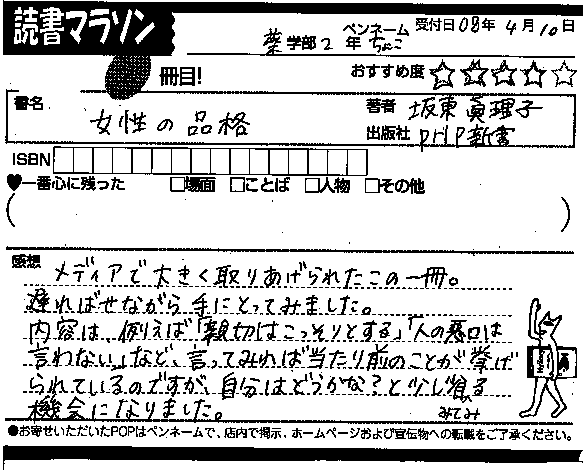 読書マラソン
薬学部 2 年 ペンネーム ちょこ 受付日 08年 4月 10日
冊目! おすすめ度 ☆☆☆☆☆
書名 女性の品格
著者 坂東眞理子
出版社 PHP新書
ISBN
♥一番心に残った □場面 □ことば □人物 □その他
( )
感想
メディアで大きく取りあげられたこの一冊。
遅ればせながら手にとってみました。
内容は、例えば「親切はこっそりとする」「人の悪口は
言わない」など、言ってみれば当たり前のことが挙げ
られているのですが、自分はどうかな?と少し省みてみる
機会になりました。
●お寄せいただいたPOPはペンネームで、店内で掲示、ホームページおよび宣伝物への転載をご了承ください。